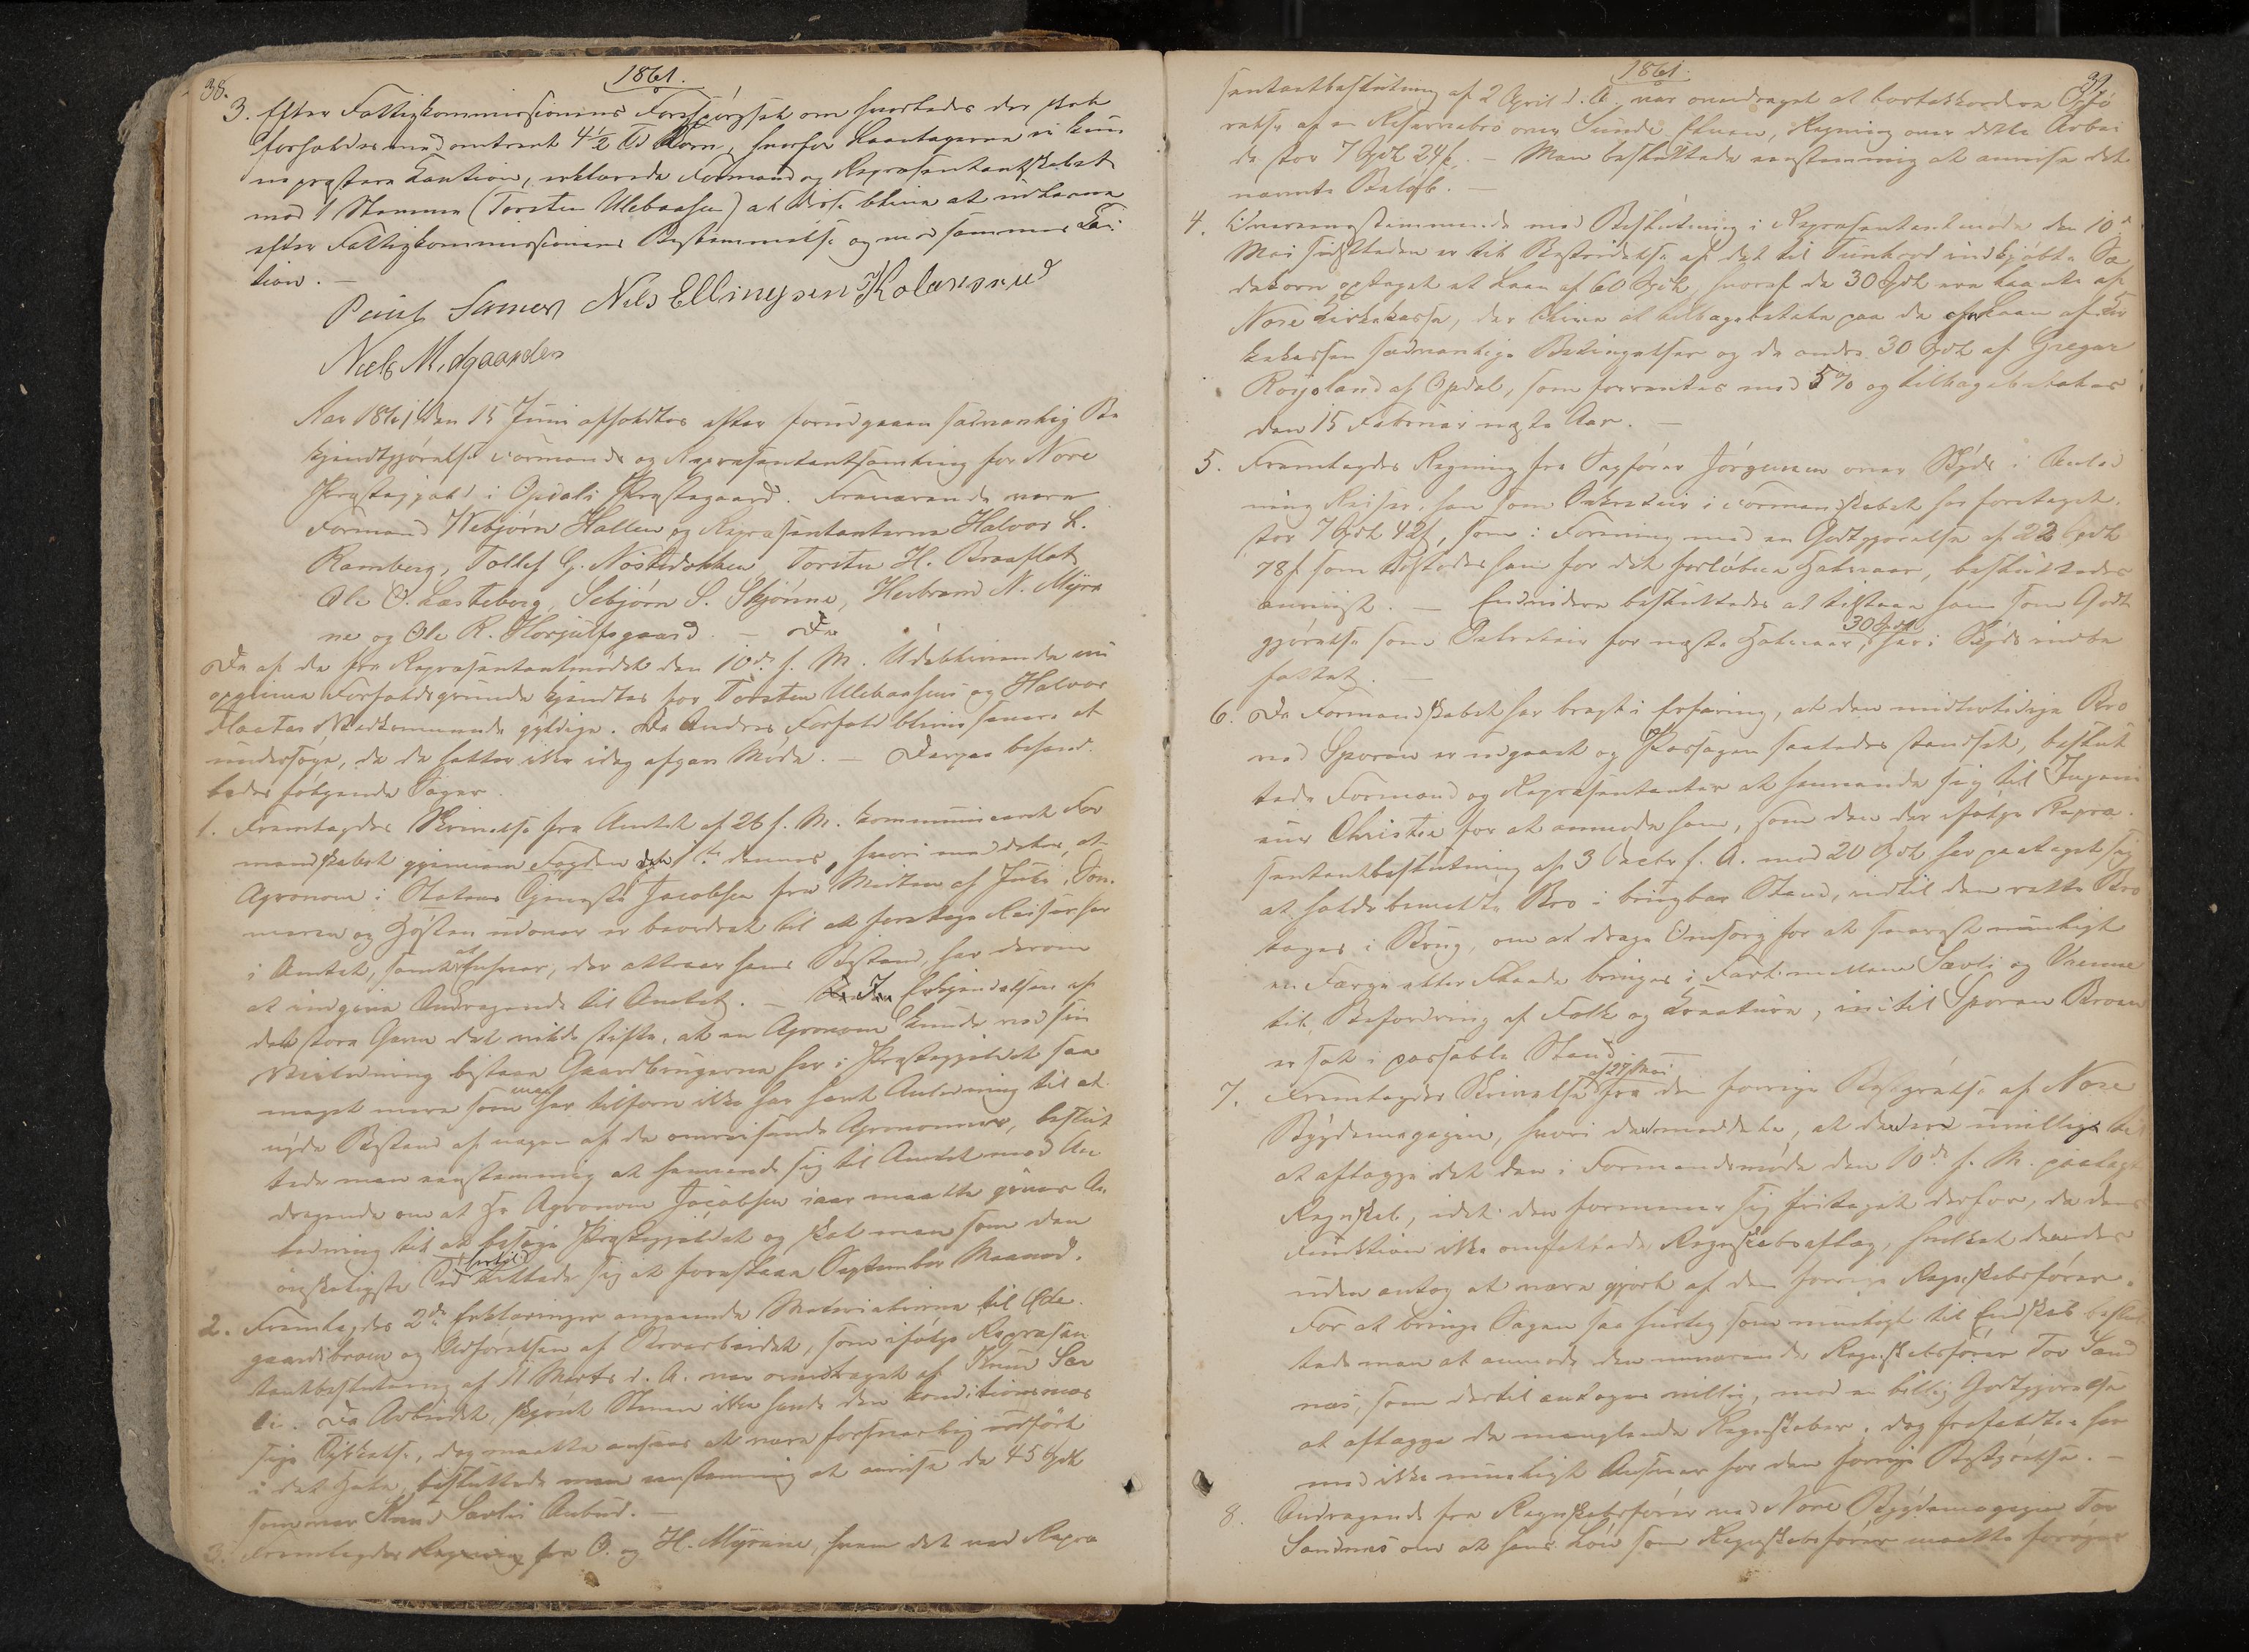 38.
1861.
3. Efter Fattigkommissionens Forespørgsel om hvorledes der skal
forholdes med omtrent 4½ Td Korn, hvorfor Laantagerne ei kun
ne præstere Kaution, erklærede Formænd og Repræsentantskabet
mod 1 Stemme (Torsten Ulebaasen) at disse blive at udlaane
efter Fattigkommissionens Bestemmelse og med sammes Kau
tion. —
Nils Ellingsen Kolansrud
Niels Midgaarden
Aar 1861 den 15 Juni afholdtes efter forudgaaen sædvanlig Be
kjendtgjørelse Formands og Repræsentantsamling for Nore
Præstegjæld i Opdals Præstegaard. Fraværende vare
Formand Webjørn Hallen og Repræsentanterne Halvor L.
Ramberg, Tollef G. Nøstedokken, Torsten H. Braaflat
Ole O. Lasteborg, Sebjørn S. Skjønne, Herbrand N. Myra
ne og Ole R. Horjulfsgaard. —
De af de fra Repræsentantmødet den 10de f. M. Udeblivende nu
opgivne Forfaldsgrunde kjendtes for Torsten Ulebaasens og Halvor
Vedkommende gyldige. De Andres Forfald blive senere at
undersøge, da de hatter ikke idag afgav Møde. — Derpaa behand
ledes følgende Sager.
1. Fremlagdes Skrivelse fra Amtet af 26 f. M. kommuniceret For
mandskabet gjennem Fogden den 1ste dennes, hvori meddeles, at
Agronom i Statens Tjeneste Jacobsen fra Midten af Juli, Som
meren og Høsten udover er beordret til at foretage Reiser her
i Amtet, samt at Enhver, der attraar hans Bistand, har derom
at indgive Andragende til Amtet. — I Erkjendelsen af
det store Gavn det vilde stifte, at en Agronom kunde ved sin
Veiledning bistaa Gaardbrugerne her i Præstegjeldet saa
meget mere som man her tilforn ikke har havt Anledning til at
nyde Bistand af nogen af de omreisende Agronomer, beslut
tede man eenstemmig at henvende sig til Amtet med An
dragende om at Hr Agronom Jacobsen iaar maatte gives An
ledning til at besøge Præstegjeldet og skal man som den
ønskeligste Tid hertil tillade sig at foreslaae September Maaned.
2. Fremlagdes 2de Erklæringer angaaende Materialierne til Øde
gaardsbroen og Udførelsen af Broarbeidet, som ifølge Repræsen
tantbeslutning af 11 Marts d. A. var overdraget af Knud Sæv
li. Da Arbeidet, skjønt Stenen ikke havde den konditionsmæs
sige Tykkelse, dog maatte ansees at være forsvarlig udført
i det Hele, besluttede man eenstemmig at anvise de 45 Spdl
som var Knud Sævlis Anbud. —
3. Fremlagdes Regning fra O. og H. Myrane, hvem det ved Repræ
1861.
39
sentantbeslutning af 2 April d. A. var overdraget at bortakkordere Opfø
relse af en Reservebro over Sunde Elven, Regning over dette Arbei
de stor 7 Spdl 24 ß. — Man besluttede eenstemmig at anvise det
nævnte Beløb. —
4. Overeensstemmende med Beslutning i Repræsentantmøde den 10de
Mai sidstleden er til Bestridelse af det til Tunhovd indkjøbte Sæ
dekorn optaget et Laan af 60 Spdl, hvoraf de 30 Spdl ere laante af
Nore Kirkekasse, der blive at tilbagebetale paa de for Laan af Kir
kekassen sædvanlige Betingelser og de andre 30 Spdl af Gregar
Rosjoland af Opdal, som forrentes med 5% og tilbagebetales
den 15 Februar næste Aar. —
5. Fremlagdes Regning fra Sagfører Jørgensen over Skyds i Anled
ning Reiser, han som Sekretair i Formandskabet har foretaget,
stor 7 Spdl 42 ß, som i Forening med en Godtgjørelse af 22 Spdl
78 ß som tilstodes ham for det forløbne Halvaar, besluttedes
anviist. — Endvidere besluttedes at tilstaae ham som Godt
gjørelse som Sekretair for næste Halvaar 30 Spdl, heri Skyds indbe
fattet. —
6. Da Formandskabet har bragt i Erfaring, at den midlertidige Bro
ved Sporan er udgaaet og Passagen saaledes standset, beslut
tede Formænd og Repræsentanter at henvende sig til Ingeni
eur Christie for at anmode ham, som den der ifølge Repræ
sentantbeslutning af 3 Decbr f. A. mod 20 Spdl har paataget sig
at holde bemeldte Bro i brugbar Stand, indtil den rette Bro
tages i Brug, om at drage Omsorg for at snarest muligt
en Færge eller Flaade bringes i Fart mellem Sævli og Væenne
til Befordring af Folk og Kreature, indtil Sporan Broen
er sat i passable Stand.
7. Fremlagdes Skrivelse af 27 Mai fra den forrige Bestyrelse af Nore
Bygdemagazin, hvori den meddeler, at den er uvillig til
at aflægge det den i Formandsmøde den 10de f. M. paalagte
Regnskab, idet den formener sig fritaget derfor, da dens
Funktion ikke omfattede Regnskabsaflæg, hvilket desuden
uden antog at være gjort af den forrige Regnskabsfører.
For at bringe Sagen saa hurtig som muligt til Endskab beslut
tede man at anmode den nuværende Regnskabsfører Tov Sand
næs, som dertil antages villig, mod en billig Godtgjørelse
at aflægge de manglende Regnskaber, dog frafaldtes her
ved ikke muligt Ansvar for den forrige Bestyrelse. —
8. Andragende fra Regnskabsfører ved Nore Bygdemagazin Tov
Sandnæs om at hans Løn som Regnskabsfører maatte forøges